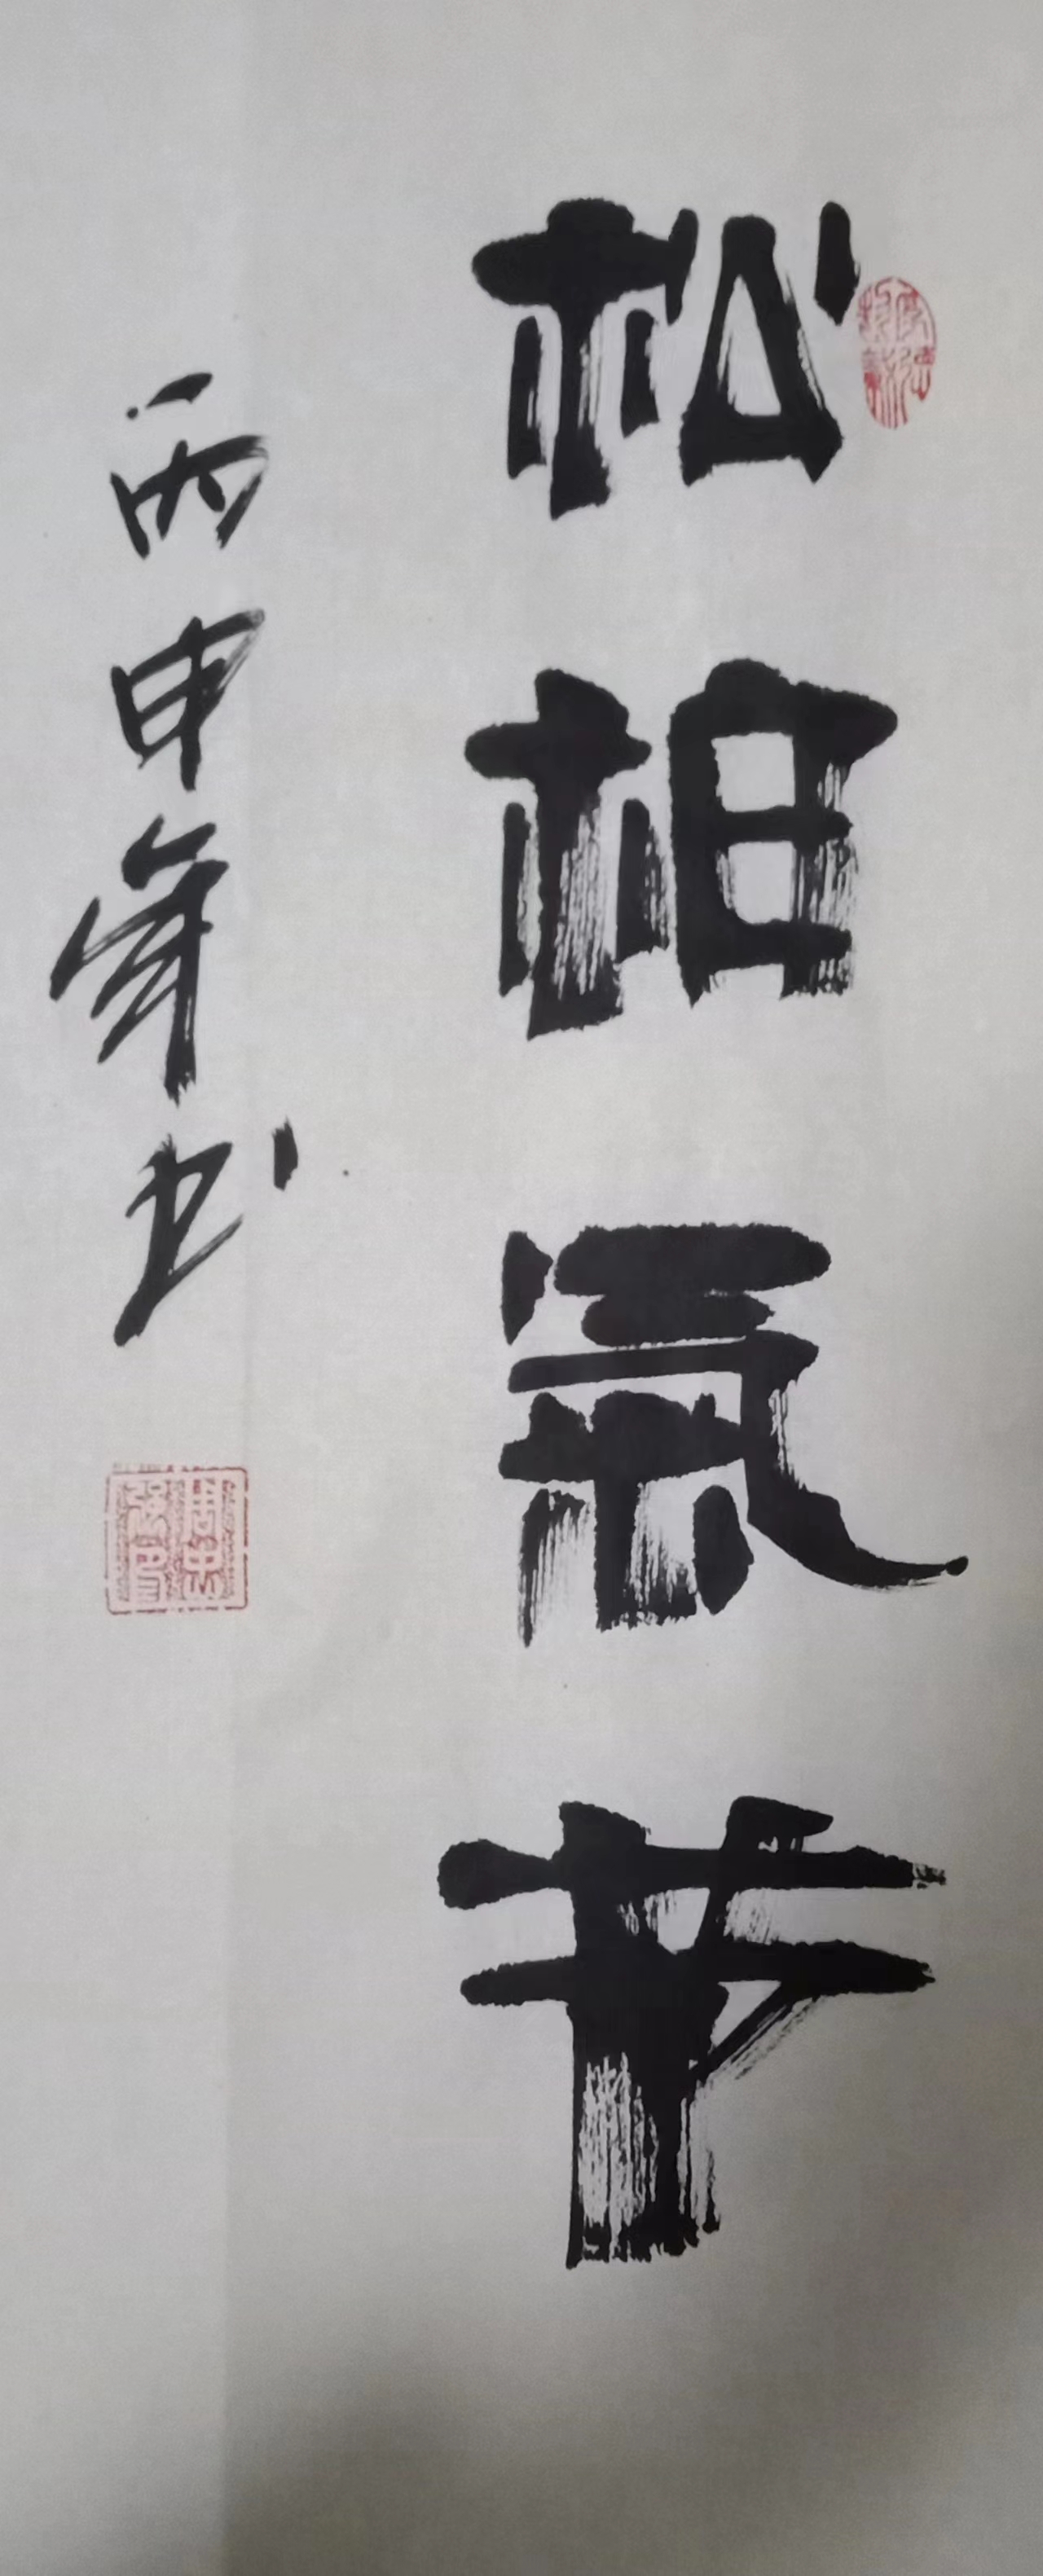 松柏氣节
丙申年书